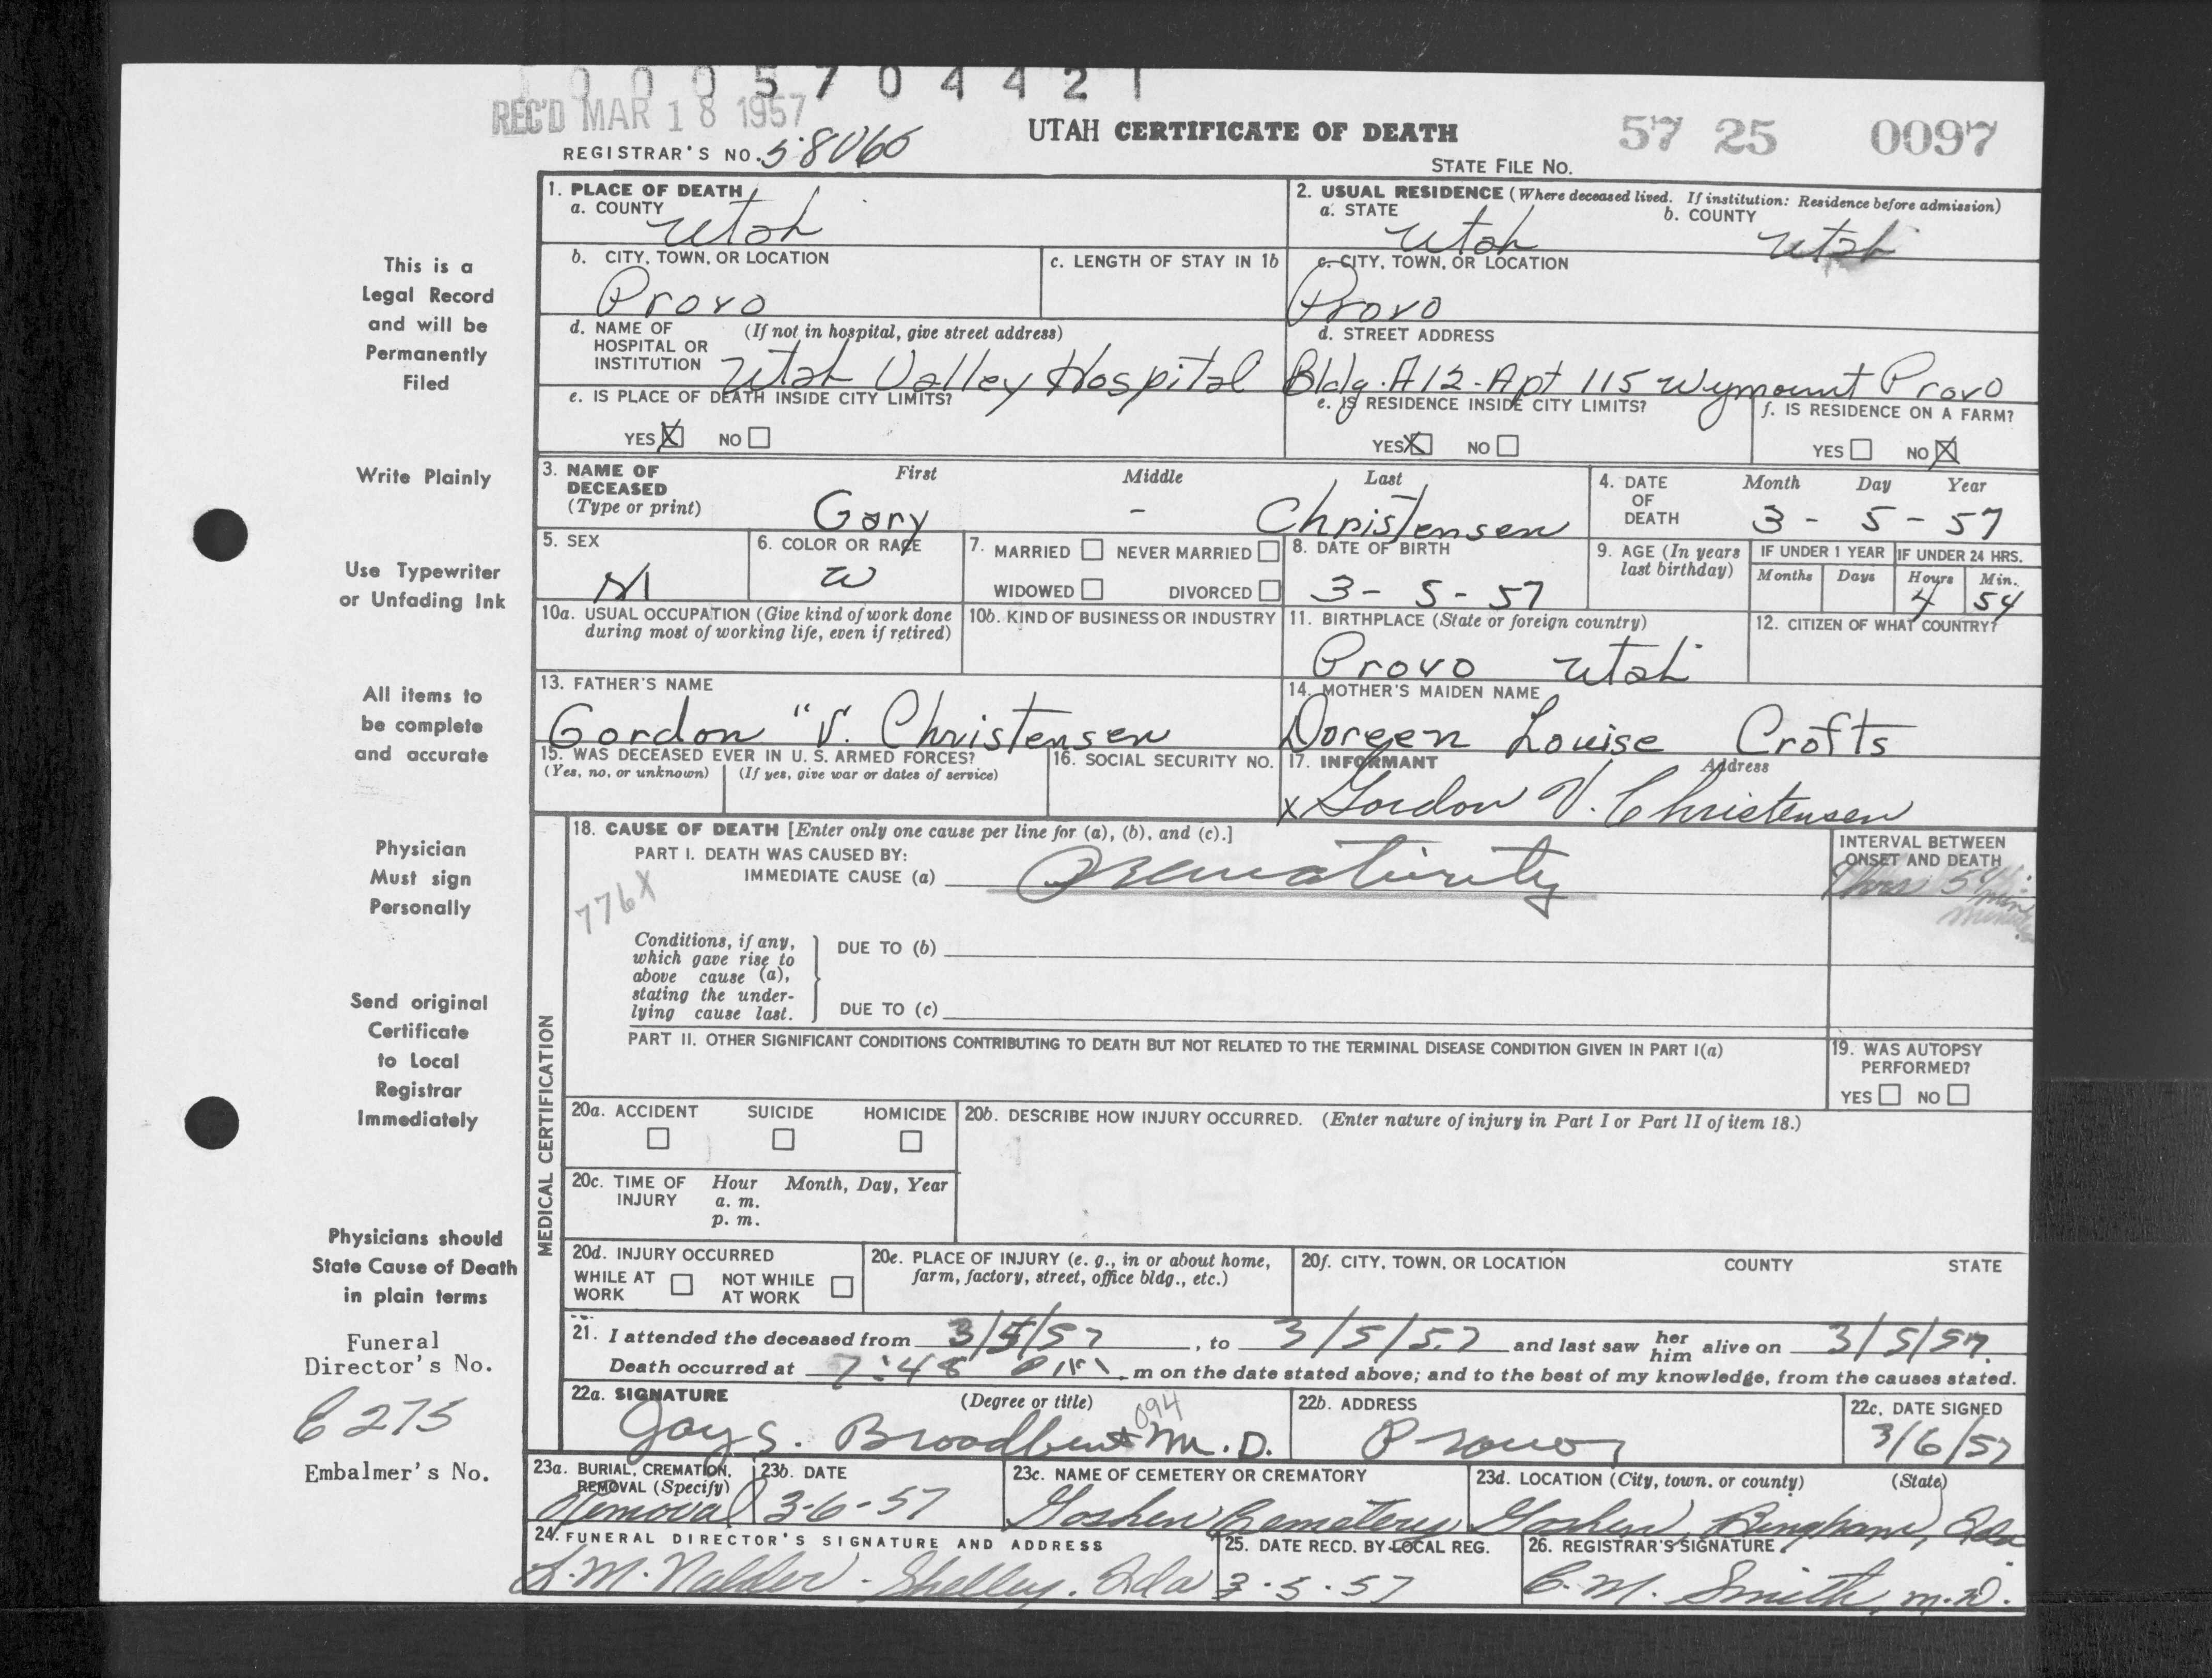 0 0 0 5 7 0 4 4 2 1
REC'D MAR 18 1957
UTAH CERTIFICATE OF DEATH
57 25 0097
REGISTRAR'S NO. 58060
STATE FILE NO.
1. PLACE OF DEATH
a. COUNTY
Utah
2. USUAL RESIDENCE (Where deceased lived. If institution: Residence before admission)
a. STATE
Utah
b. COUNTY
Utah
b. CITY, TOWN, OR LOCATION
Provo
c. LENGTH OF STAY IN 1b
c. CITY, TOWN, OR LOCATION
Provo
d. NAME OF HOSPITAL OR INSTITUTION
(If not in hospital, give street address)
Utah Valley Hospital
d. STREET ADDRESS
Bldg. A12-Apt 115 Wymount Provo
e. IS PLACE OF DEATH INSIDE CITY LIMITS?
YES X NO
e. IS RESIDENCE INSIDE CITY LIMITS?
YES X NO
f. IS RESIDENCE ON A FARM?
YES NO X
3. NAME OF DECEASED (Type or print)
First Middle Last
Gary - Christensen
4. DATE OF DEATH
Month Day Year
3 - 5 - 57
5. SEX
M
6. COLOR OR RACE
W
7. MARRIED NEVER MARRIED
WIDOWED DIVORCED
8. DATE OF BIRTH
3 - 5 - 57
9. AGE (In years last birthday)
IF UNDER 1 YEAR
Months Days
IF UNDER 24 HRS.
Hours Min.
4 54
10a. USUAL OCCUPATION (Give kind of work done during most of working life, even if retired)
10b. KIND OF BUSINESS OR INDUSTRY
11. BIRTHPLACE (State or foreign country)
Provo Utah
12. CITIZEN OF WHAT COUNTRY?
13. FATHER'S NAME
Gordon "V. Christensen
14. MOTHER'S MAIDEN NAME
Doreen Louise Crofts
15. WAS DECEASED EVER IN U. S. ARMED FORCES?
(Yes, no, or unknown) (If yes, give war or dates of service)
16. SOCIAL SECURITY NO.
17. INFORMANT Address
x Gordon V. Christensen
MEDICAL CERTIFICATION
18. CAUSE OF DEATH [Enter only one cause per line for (a), (b), and (c).]
PART I. DEATH WAS CAUSED BY:
IMMEDIATE CAUSE (a) Prematurity
776X
INTERVAL BETWEEN ONSET AND DEATH
Conditions, if any, which gave rise to above cause (a), stating the underlying cause last.
DUE TO (b)
DUE TO (c)
PART II. OTHER SIGNIFICANT CONDITIONS CONTRIBUTING TO DEATH BUT NOT RELATED TO THE TERMINAL DISEASE CONDITION GIVEN IN PART I(a)
19. WAS AUTOPSY PERFORMED?
YES NO
20a. ACCIDENT SUICIDE HOMICIDE
20b. DESCRIBE HOW INJURY OCCURRED. (Enter nature of injury in Part I or Part II of item 18.)
20c. TIME OF INJURY
Hour Month, Day, Year
a. m.
p. m.
20d. INJURY OCCURRED
WHILE AT WORK NOT WHILE AT WORK
20e. PLACE OF INJURY (e. g., in or about home, farm, factory, street, office bldg., etc.)
20f. CITY, TOWN, OR LOCATION COUNTY STATE
21. I attended the deceased from 3/5/57, to 3/5/57 and last saw her him alive on 3/5/57.
Death occurred at 7:48 PM m on the date stated above; and to the best of my knowledge, from the causes stated.
22a. SIGNATURE (Degree or title)
Jay S. Broadbent M.D.
094
22b. ADDRESS
Provo
22c. DATE SIGNED
3/6/57
23a. BURIAL, CREMATION, REMOVAL (Specify)
Removal
23b. DATE
3-6-57
23c. NAME OF CEMETERY OR CREMATORY
Goshen Cemetery
23d. LOCATION (City, town, or county) (State)
Goshen, Bingham, Ida
24. FUNERAL DIRECTOR'S SIGNATURE AND ADDRESS
L.M. Nalder - Shelley, Ida
25. DATE RECD. BY LOCAL REG.
3.5.57
26. REGISTRAR'S SIGNATURE
C. M. Smith, M.D.
This is a
Legal Record
and will be
Permanently
Filed
Write Plainly
Use Typewriter
or Unfading Ink
All items to
be complete
and accurate
Physician
Must sign
Personally
Send original
Certificate
to Local
Registrar
Immediately
Physicians should
State Cause of Death
in plain terms
Funeral
Director's No.
6275
Embalmer's No.